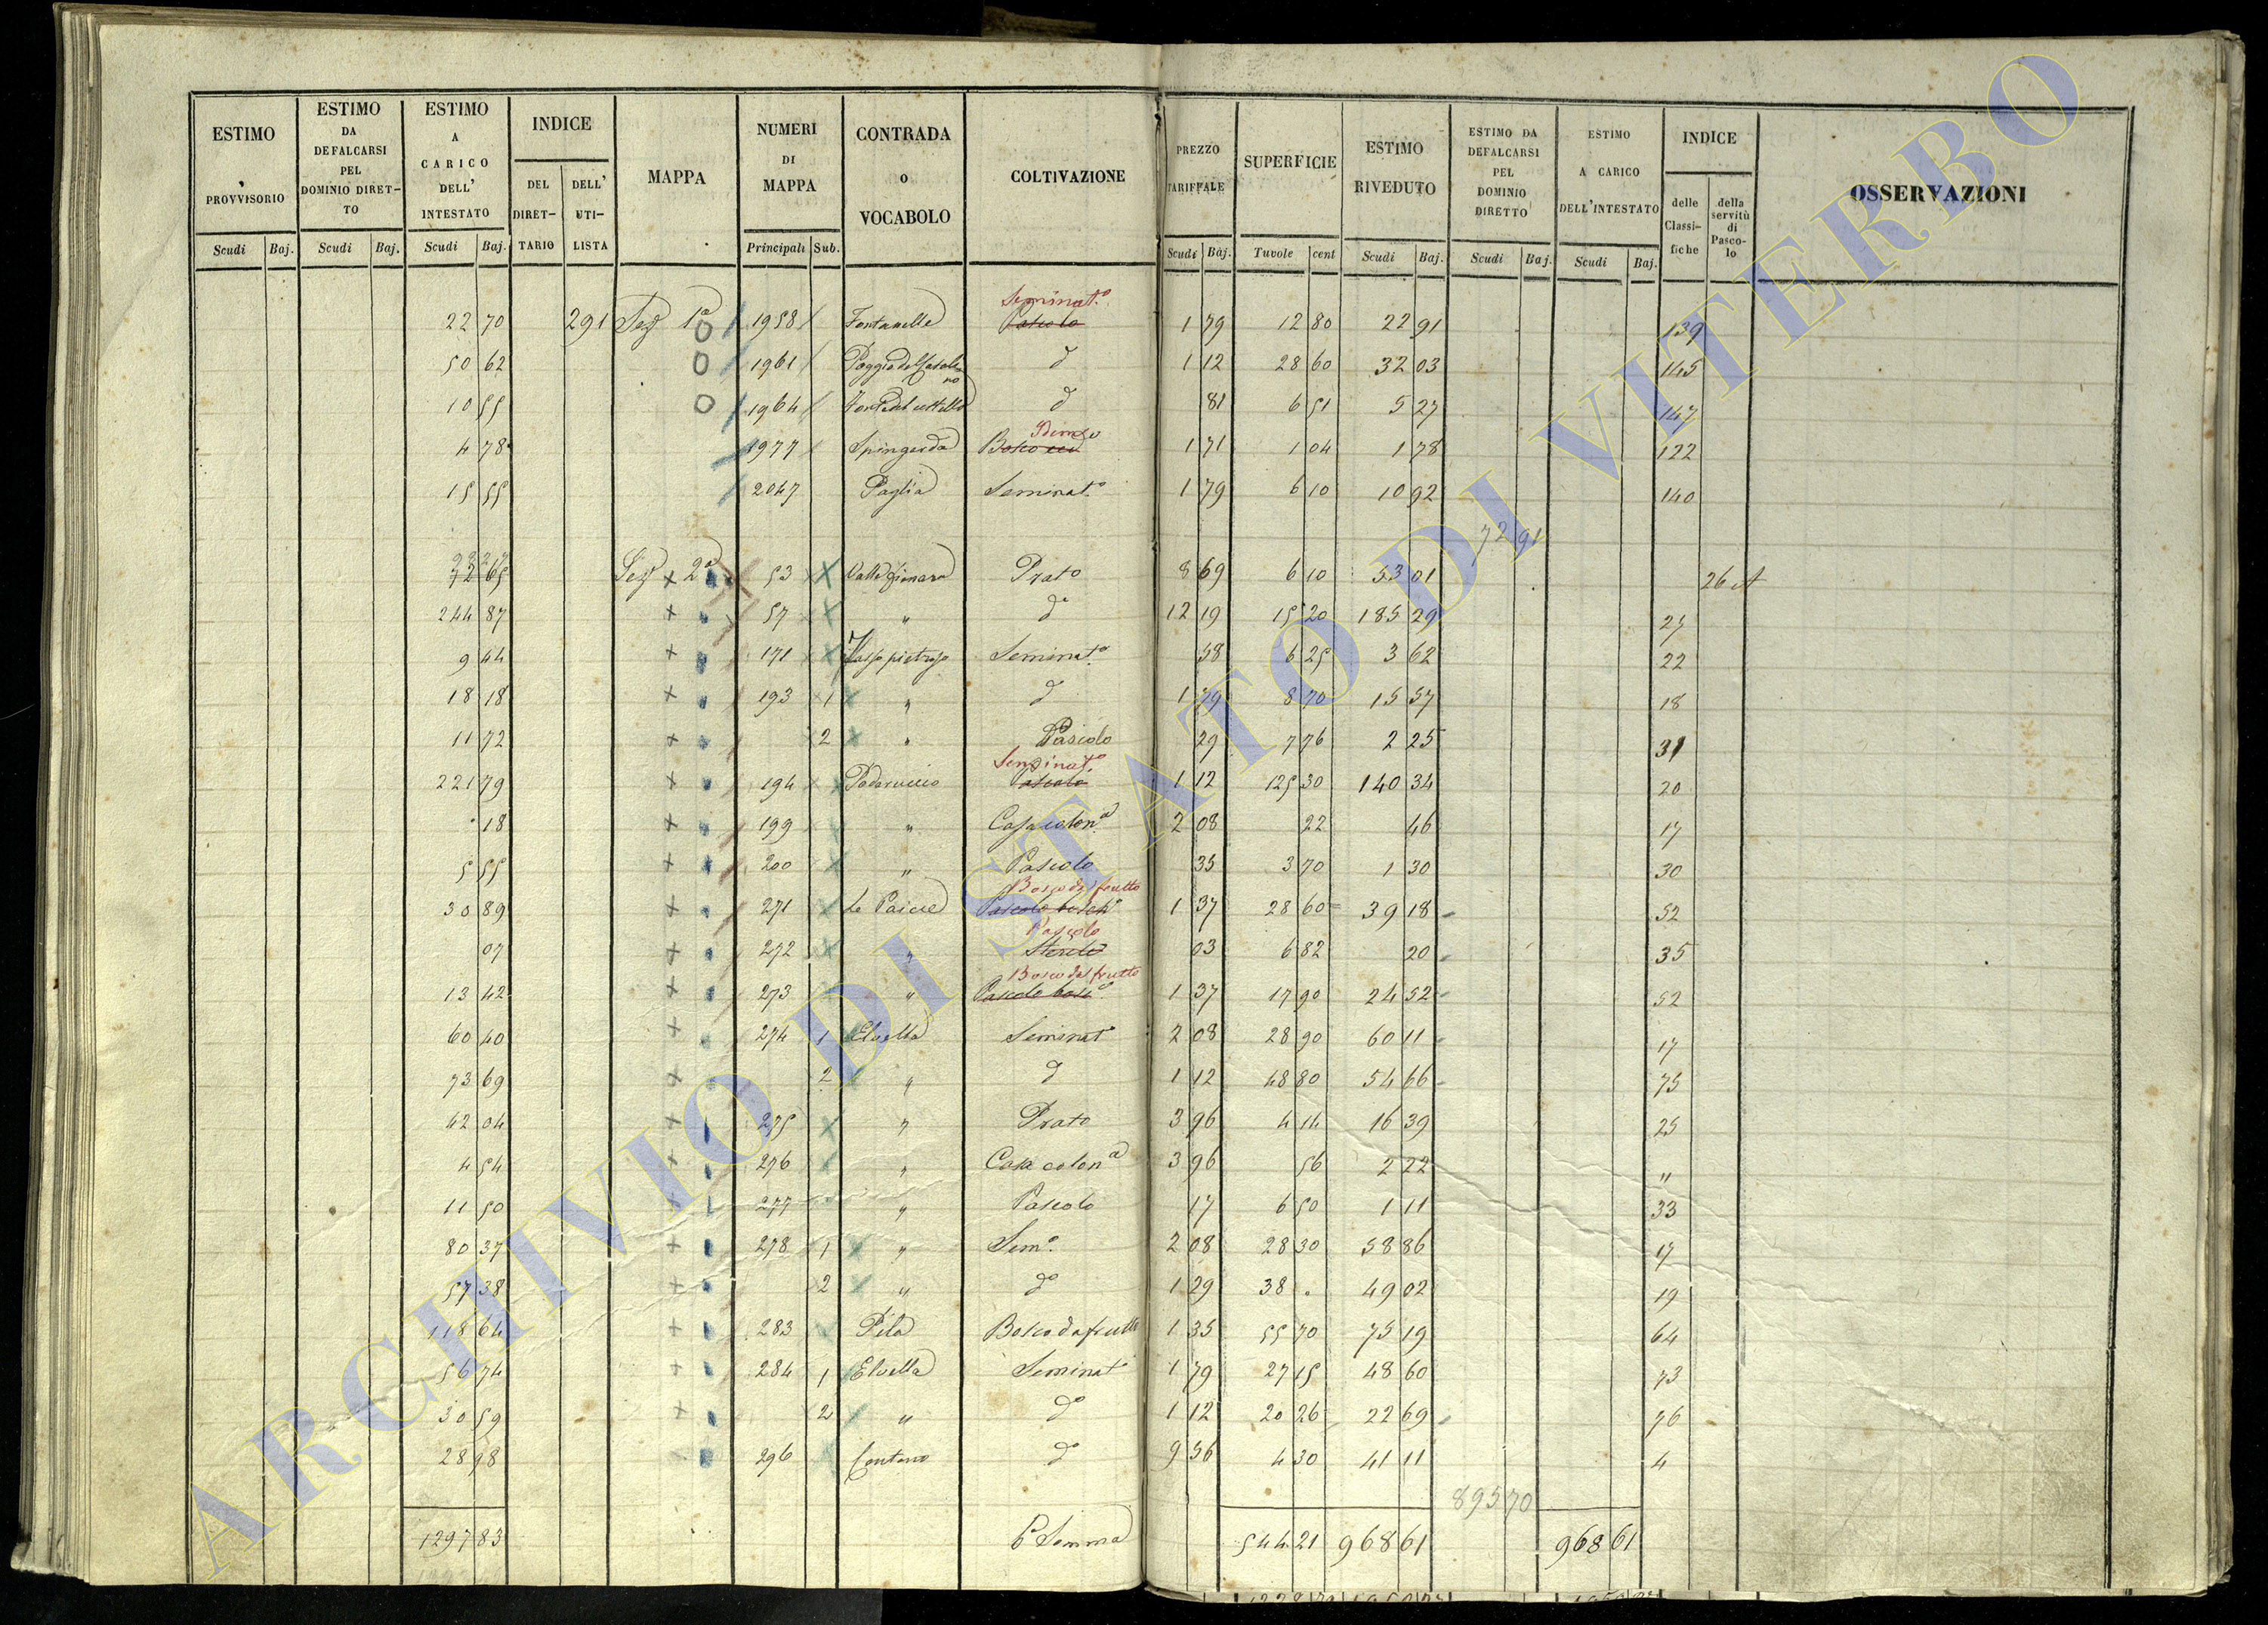 ESTIMO PROVVISORIO Scudi Baj.
ESTIMO DA DEFALCARSI PEL DOMINIO DIRET- TO Scudi Baj.
ESTIMO A CARICO DELL' INTESTATO Scudi Baj.
INDICE DEL DIRET- TARIO DELL' UTI- LISTA
MAPPA
NUMERI DI MAPPA Principali Sub.
CONTRADA O VOCABOLO
COLTIVAZIONE
PREZZO TARIFFALE Scudi Baj.
SUPERFICIE Tavole cent
ESTIMO RIVEDUTO Scudi Baj.
ESTIMO DA DEFALCARSI PEL DOMINIO DIRETTO Scudi Baj.
ESTIMO A CARICO DELL'INTESTATO Scudi Baj.
INDICE delle Classi- fiche della servitù di Pasco- lo
OSSERVAZIONI
Seminat.o
22 70 291 Sez 1a 1958 Fontanelle Pascolo 1 79 12 80 22 91 139
50 62 1961 d 1 12 28 60 32 03 145
10 55 1964 d 81 6 51 5 27 147
4 78 1977 Spingarda Bosco 1 71 1 04 1 78 122
15 55 2047 Paglia Seminat.o 1 79 6 10 10 92 140
72 91
72 65 Sez 2a 53 Prato 8 69 6 10 53 01 26 A
244 87 57 " do 12 19 15 20 185 29 25
9 44 171 Seminat.o 58 6 25 3 62 22
18 18 193 1 " d 1 79 8 70 15 57 18
11 72 2 " Pascolo 29 7 76 2 25 31
Seminat.o
221 79 194 Poderuccio Pascolo 1 12 125 30 140 34 20
18 199 " Casa colona 2 08 22 46 17
5 55 200 " Pascolo 35 3 70 1 30 30
Bosco da frutto
30 89 271 Pascolo bosco 1 37 28 60 39 18 52
Pascolo
07 272 " Sterile 03 6 82 20 35
Bosco da frutto
13 42 273 " Pascolo bosco 1 37 17 90 24 52 52
60 40 274 1 Elvella Seminato 2 08 28 90 60 11 17
73 69 2 " d 1 12 48 80 54 66 75
42 04 275 " Prato 3 96 4 14 16 39 25
4 54 276 " Casa colona 3 96 56 2 22 "
11 50 277 " Pascolo 17 6 50 1 11 33
80 37 278 1 " Sem.o 2 08 28 30 58 86 17
57 38 2 " do 1 29 38 . 49 02 19
118 64 283 Pila Bosco da frutto 1 35 55 70 75 19 64
56 74 284 1 Elvella Seminato 1 79 27 15 48 60 73
30 59 2 " do 1 12 20 26 22 69 76
28 98 296 do 9 56 4 30 41 11 4
895 70
1297 83 Somma 544 21 968 61 968 61
ARCHIVIO DI STATO DI VITERBO